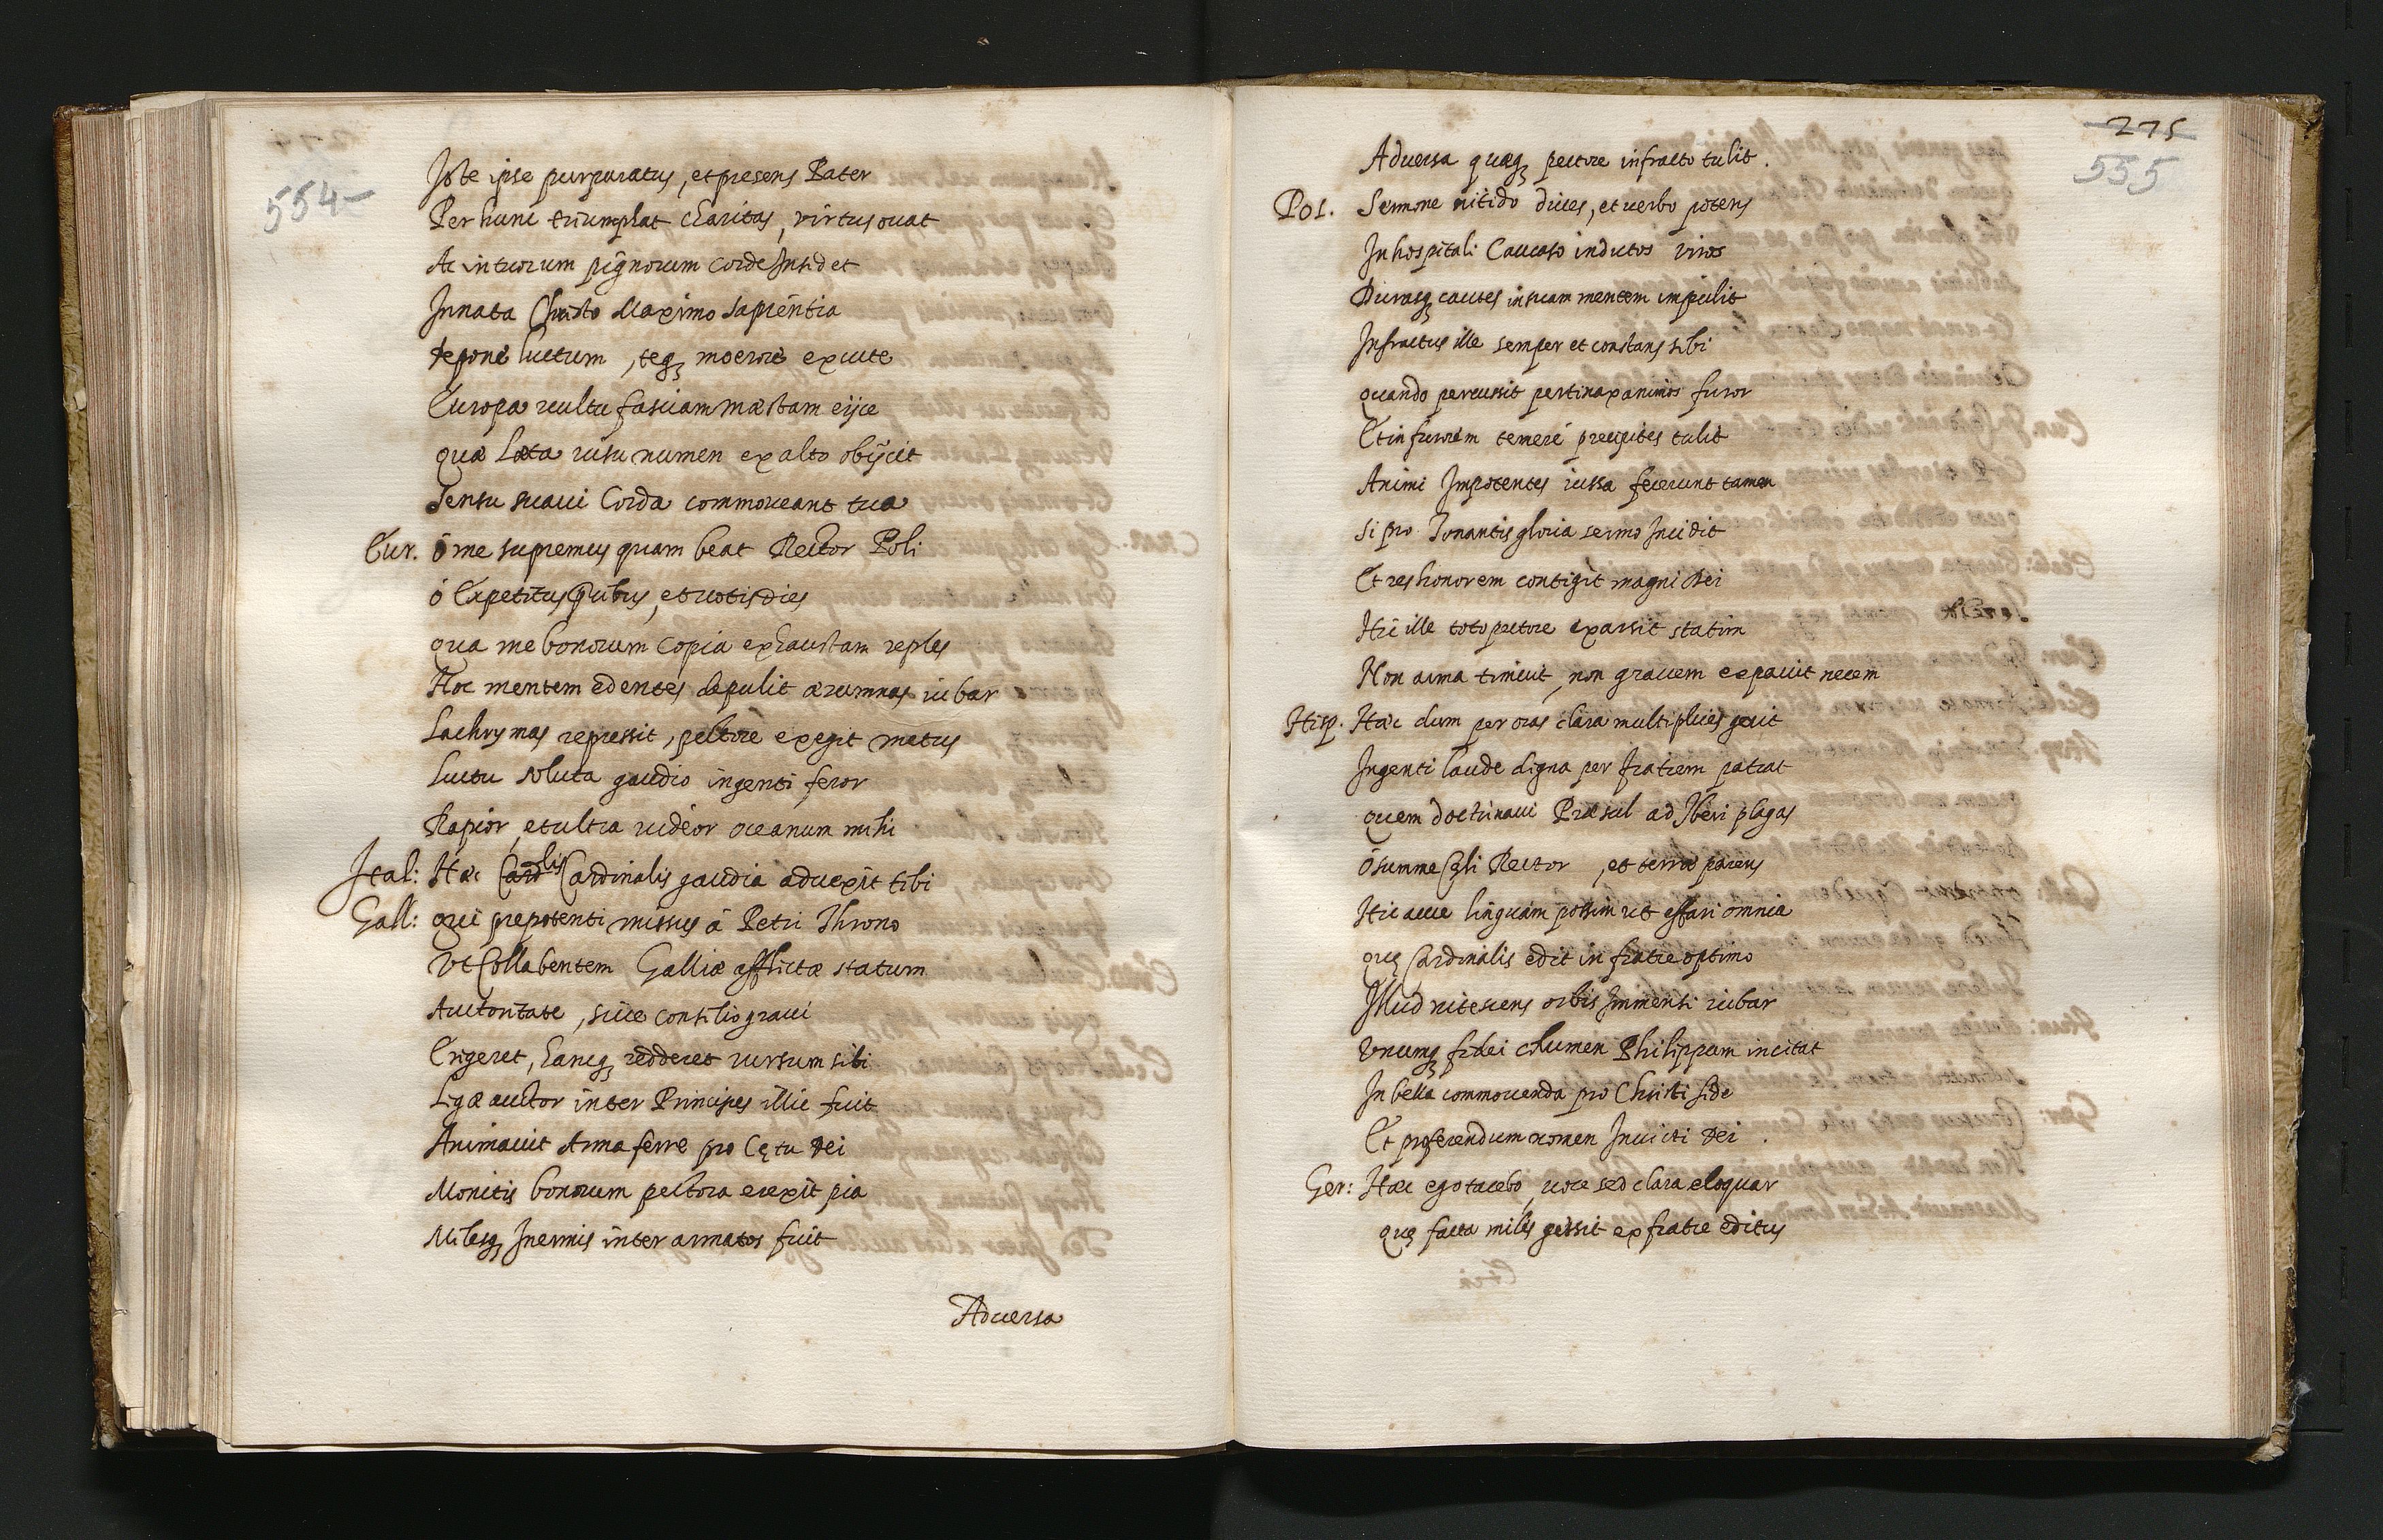 554
Iste ipse purpuratus, et presens Pater
Per hunc triumphat charitas, virtus ouat
Ac in tuorum pignorum corde Insidet
Innata Christo Maximo sapientia
depone luctum, teq₃ moerore excute
Europa uultu fasciam mæstam eijce
quæ læta uisu numen ex alto obijcit
Sensu suaui Corda commoueant tua
Eur. ó me supremus quam beat Rector Poli
ó Expetitus quibus, et uotis dies
qua me bonorum copia exhaustam reples
Hoc mentem edentes depulit ærumnas iubar
Lachrymas repressit, pectore exegit metus
Luctu soluta gaudio ingenti feror
Rapior, et ultra uideor oceanum mihi
Ital: Hæc Cardlis Cardinalis gaudia aduexit tibi
Gall: qui prepotenti missus á Petri Throno
Vt Collabentem Galliæ afflictæ statum
Auctoritate, siue consilio graui
Erigeret, hancq₃ redderet rursum sibi
Ligæ auctor inter Principes illic fuit
Animauit Arma ferre pro Cętu dei
Monitis bonorum pectora erexit pia
Milesq₃ Inermis inter armatos fuit
Aduersa
275
555
Aduersa quæq₃ pectore infracto tulit.
Pol. Sermone nitido diues, et uerbo potens
Inhospitali Caucaso indutos viros
Durasq₃ cautes in suam mentem impulit
Infractus ille semper et constans sibi
quando percussit pertinax animos furor
Et in furorem temeré precipites tulit
Animi Impotentes iussa fecerunt tamen
Si pro Tonantis gloria sermo Incidit
Et res honorem contigit magni dei
Hic ille toto pectore exarsit statim
Non arma timuit, non grauem expauit necem
Hisp. Hæc dum per oras clara multiplices gerit
Ingenti laude digna per fratrem patrat
quem doctinaui Præsul ad Iberi plagas
ó summe Cęli Rector, et terræ parens
Hic linguam possim ut effari omnia
quę Cardinalis edit in fratre optimo
Illud nitescens orbis Immensi iubar
Vnumq₃ fidei columen Philippum incitat
In bella commouenda pro Christi fide
Et proferendum nomen Inuicti dei.
Ger: Hæc ego tacebo, uoce sed clara eloquar
quę facta miles gessit ex fratre editus